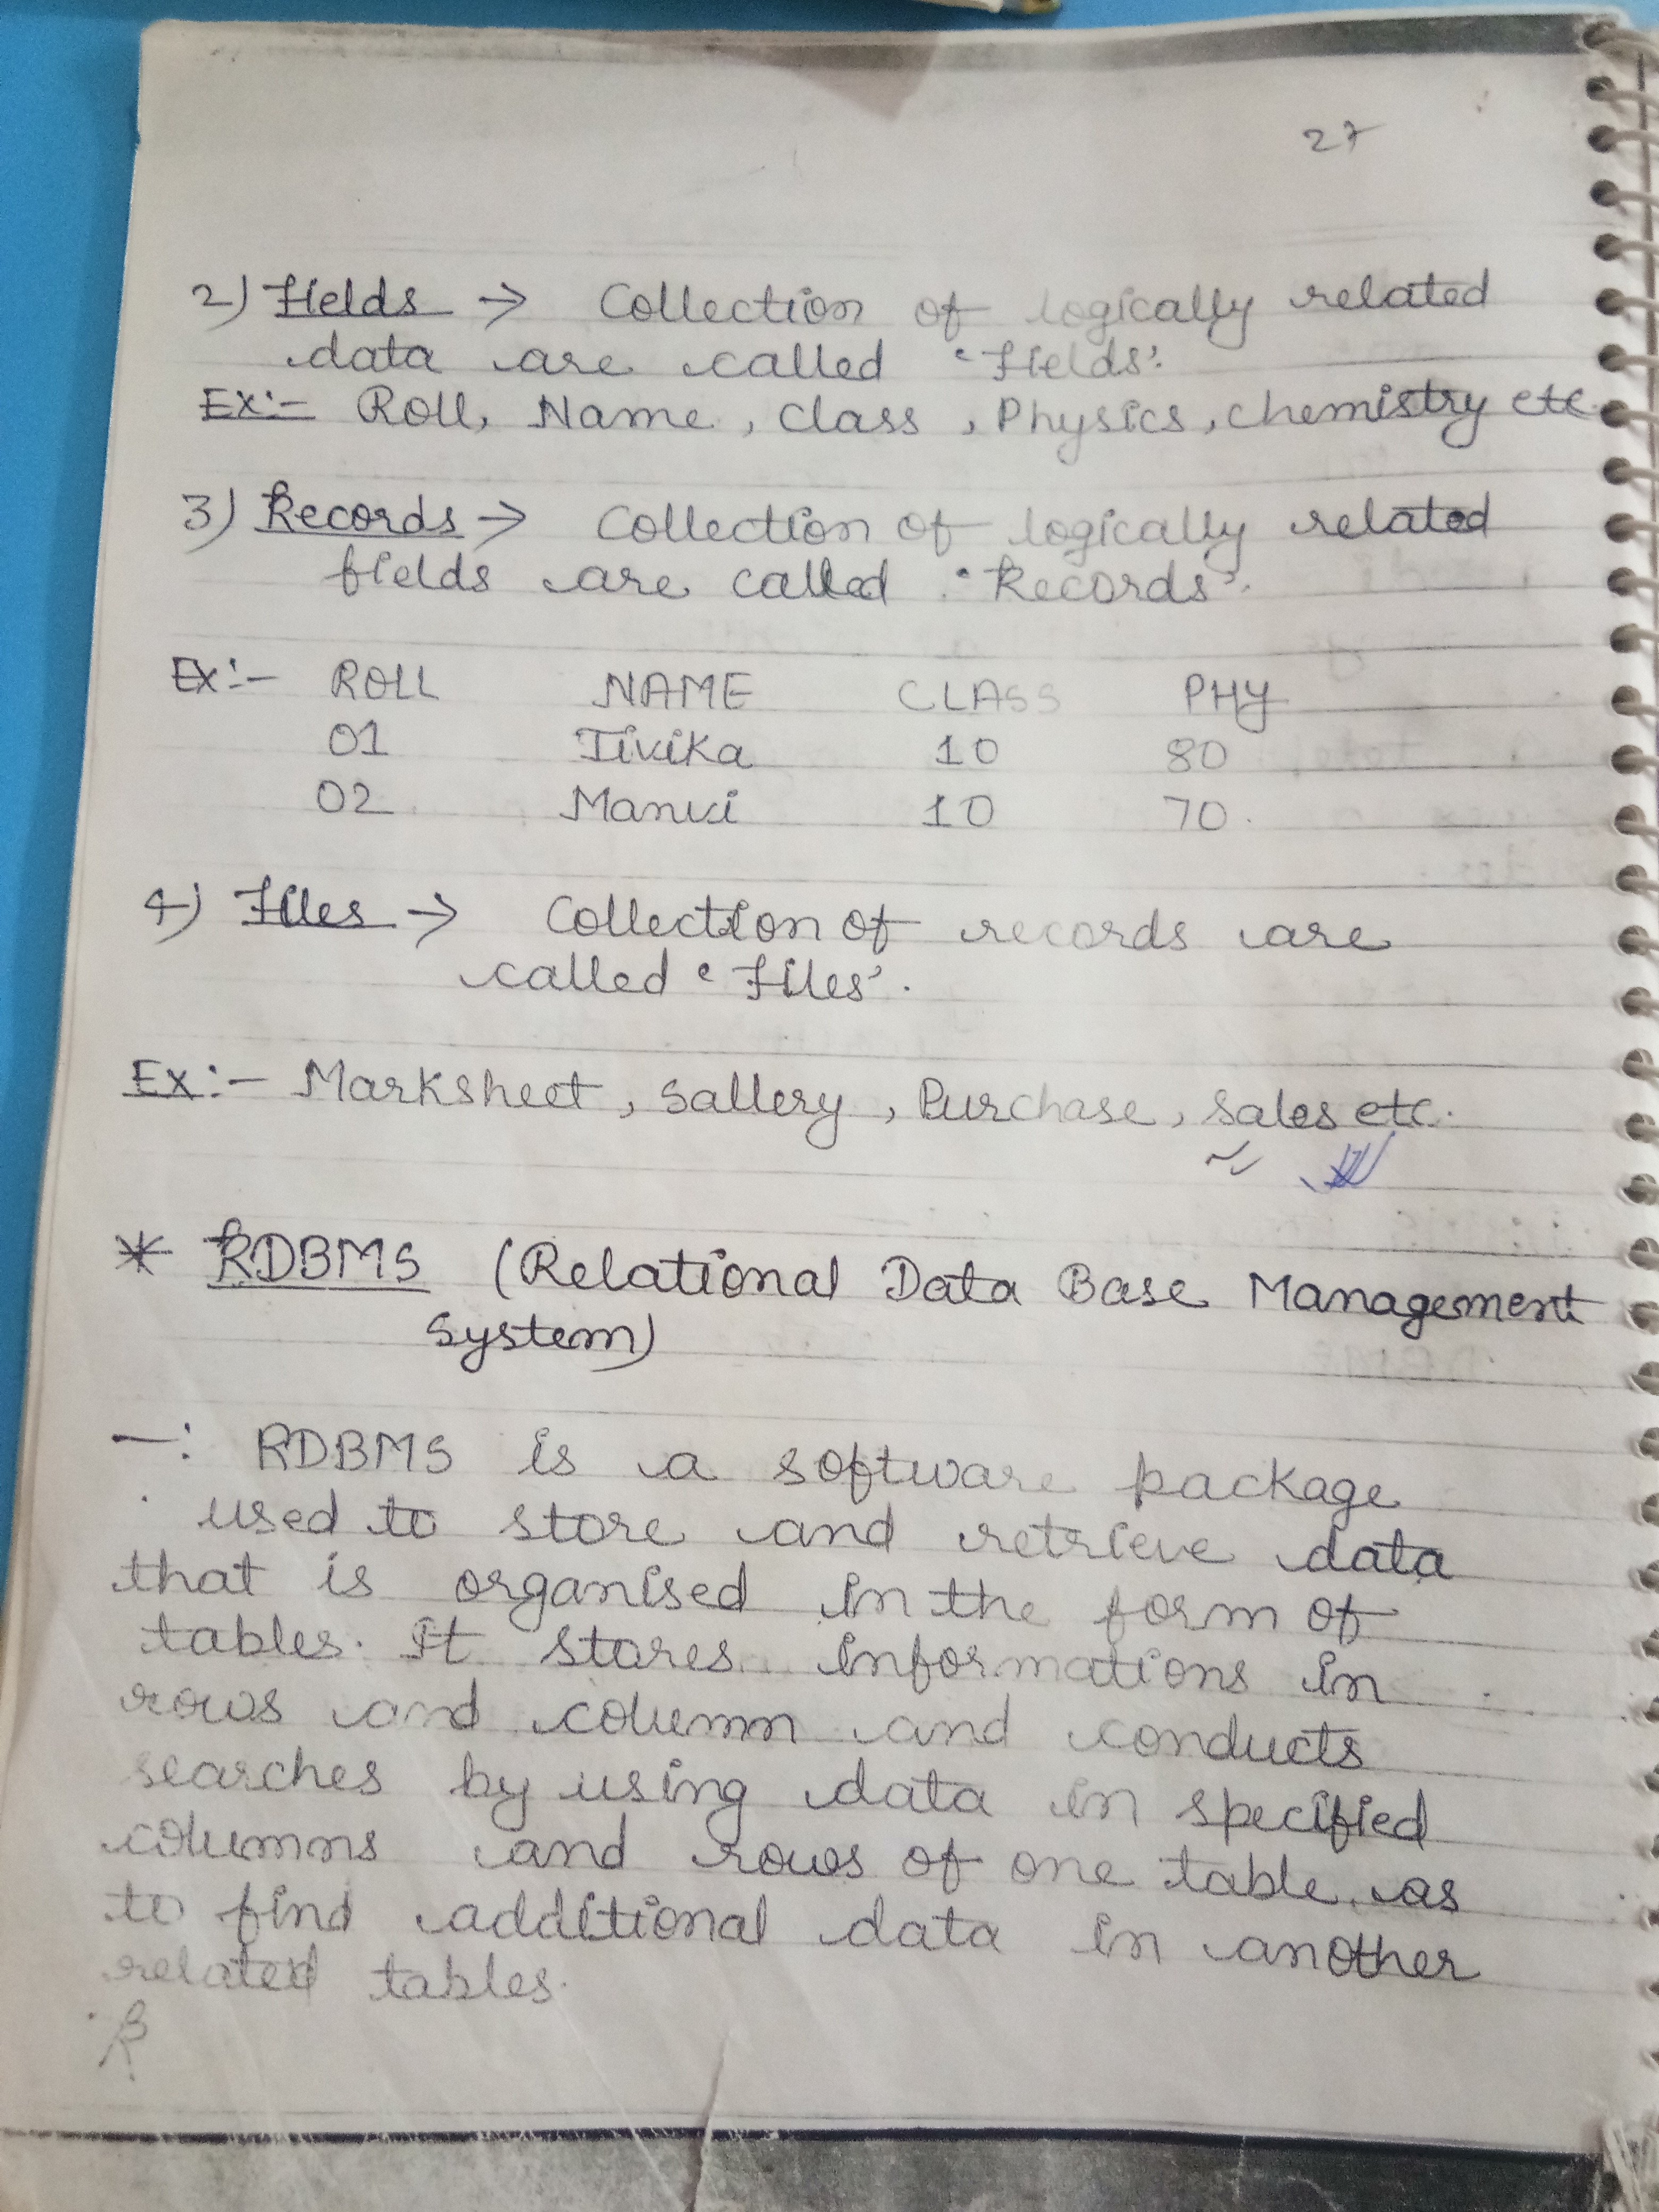 27
2) Fields → Collection of logically related
data are called 'Fields'.
Ex:- Roll, Name, Class, Physics, Chemistry etc.
3) Records → Collection of logically related
fields are called 'Records'.
Ex:- ROLL NAME CLASS PHY
01 Tivika 10 80
02 Manvi 10 70
4) Files → Collection of records are
called 'Files'.
Ex:- Marksheet, Sallery, Purchase, Sales etc.
* RDBMS (Relational Data Base Management
System)
-: RDBMS is a software package
used to store and retrieve data
that is organised in the form of
tables. It stores informations in
rows and column and conducts
searches by using data in specified
columns and rows of one table as
to find additional data in another
related tables.